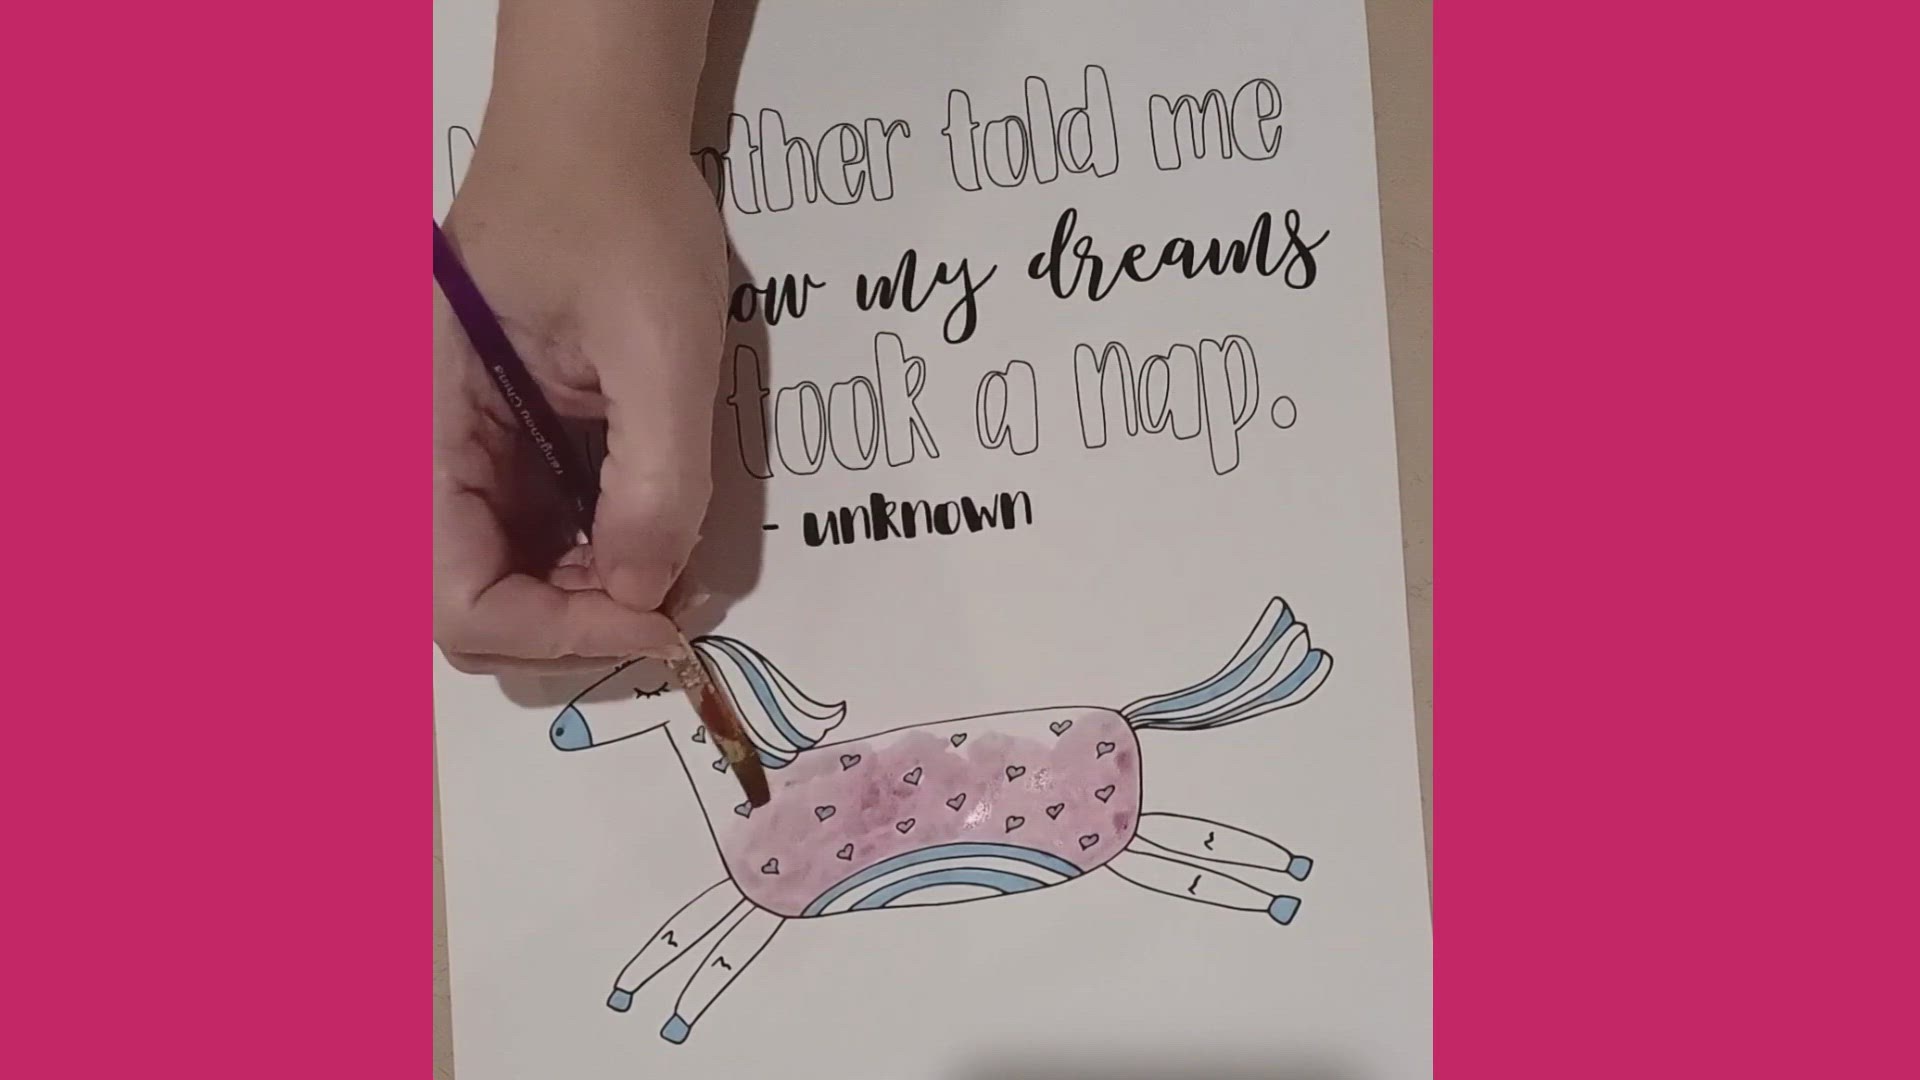 other told me
ow my dreams
took a nap.
- unknown
China